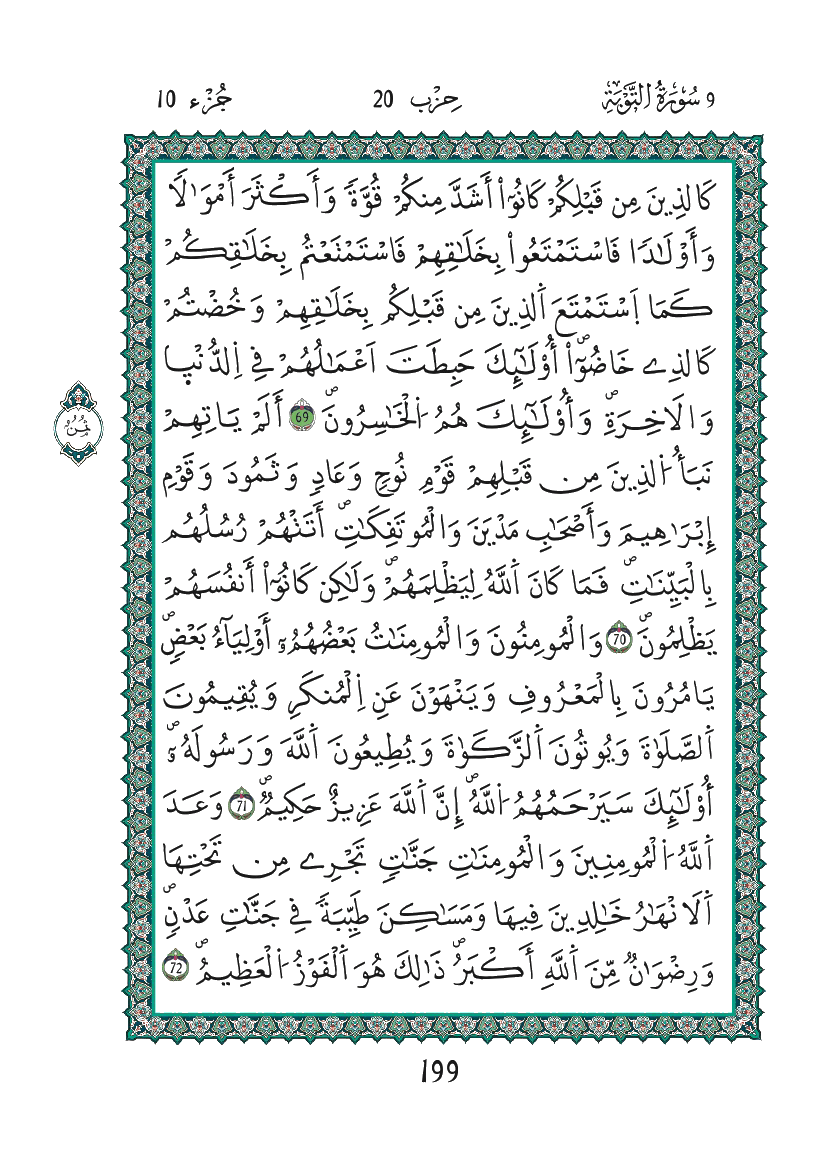 9 سُورَةُ التَّوْبَةِ حِزْب 20 جُزْء 10
كَالذِينَ مِن قَبْلِكُمْ كَانُوٓاْ أَشَدَّ مِنكُمْ قُوَّةٗ وَأَكْثَرَ أَمْوَٰلاٗ
وَأَوْلَٰدٗا فَاسْتَمْتَعُواْ بِخَلَٰقِهِمْ فَاسْتَمْتَعْتُم بِخَلَٰقِكُمْ
كَمَا اَسْتَمْتَعَ اَلذِينَ مِن قَبْلِكُم بِخَلَٰقِهِمْ وَخُضْتُمْ
كَالذِے خَاضُوٓاْۖ أُوْلَٰٓئِكَ حَبِطَتَ اَعْمَٰلُهُمْ فِے اِلدُّنْي۪ا
وَالَاخِرَةِۖ وَأُوْلَٰٓئِكَ هُمُ اَلْخَٰسِرُونَۖ 69 أَلَمْ يَاتِهِمْ
نَبَأُ اَلذِينَ مِن قَبْلِهِمْ قَوْمِ نُوحٖ وَعَادٖ وَثَمُودَ وَقَوْمِ
إِبْرَٰهِيمَ وَأَصْحَٰبِ مَدْيَنَ وَالْمُوتَفِكَٰتِۖ أَتَتْهُمْ رُسُلُهُم
بِالْبَيِّنَٰتِۖ فَمَا كَانَ اَللَّهُ لِيَظْلِمَهُمْۖ وَلَٰكِن كَانُوٓاْ أَنفُسَهُمْ
يَظْلِمُونَۖ 70 وَالْمُومِنُونَ وَالْمُومِنَٰتُ بَعْضُهُمُۥٓ أَوْلِيَآءُ بَعْضٖۖ
يَامُرُونَ بِالْمَعْرُوفِ وَيَنْهَوْنَ عَنِ اِلْمُنكَرِ وَيُقِيمُونَ
اَلصَّلَوٰةَ وَيُوتُونَ اَلزَّكَوٰةَ وَيُطِيعُونَ اَللَّهَ وَرَسُولَهُۥٓۖ
أُوْلَٰٓئِكَ سَيَرْحَمُهُمُ اَللَّهُۖ إِنَّ اَللَّهَ عَزِيزٌ حَكِيمٞۖ 71 وَعَدَ
اَللَّهُ اَلْمُومِنِينَ وَالْمُومِنَٰتِ جَنَّٰتٖ تَجْرِے مِن تَحْتِهَا
اَلَانْهَٰرُ خَٰلِدِينَ فِيهَا وَمَسَٰكِنَ طَيِّبَةٗ فِے جَنَّٰتِ عَدْنٖۖ
وَرِضْوَٰنٞ مِّنَ اَللَّهِ أَكْبَرُۖ ذَٰلِكَ هُوَ اَلْفَوْزُ اَلْعَظِيمُۖ 72
ثُمُن
199